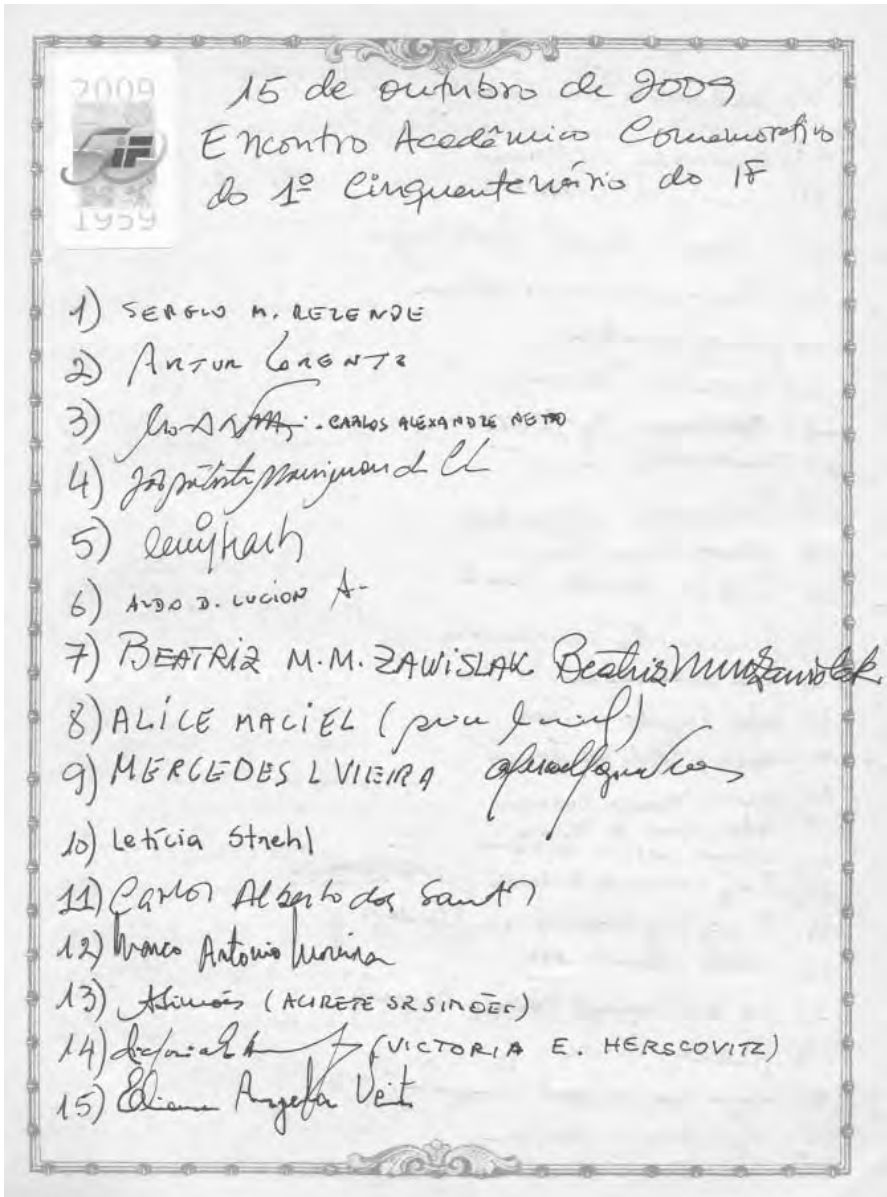 2009
IF
1959
15 de outubro de 2009
Encontro Acadêmico Comemorativo
do 1º Cinquentenário do IF
1) SERGIO M. REZENDE
2) ARTUR LORENTZ
3) CARLOS ALEXANDRE NETTO
4)
5)
6) ALDO D. LUCION
7) BEATRIZ M.M. ZAWISLAK Beatriz
8) ALICE MACIEL (
9) MERCEDES L VIEIRA
10) Letícia Strehl
11) Carlos Alberto dos Santos
12) Marco Antonio Moreira
13) ASimões (ALIRETE SR SIMÕES)
14) (VICTORIA E. HERSCOVITZ)
15) Eliane Angela Veit